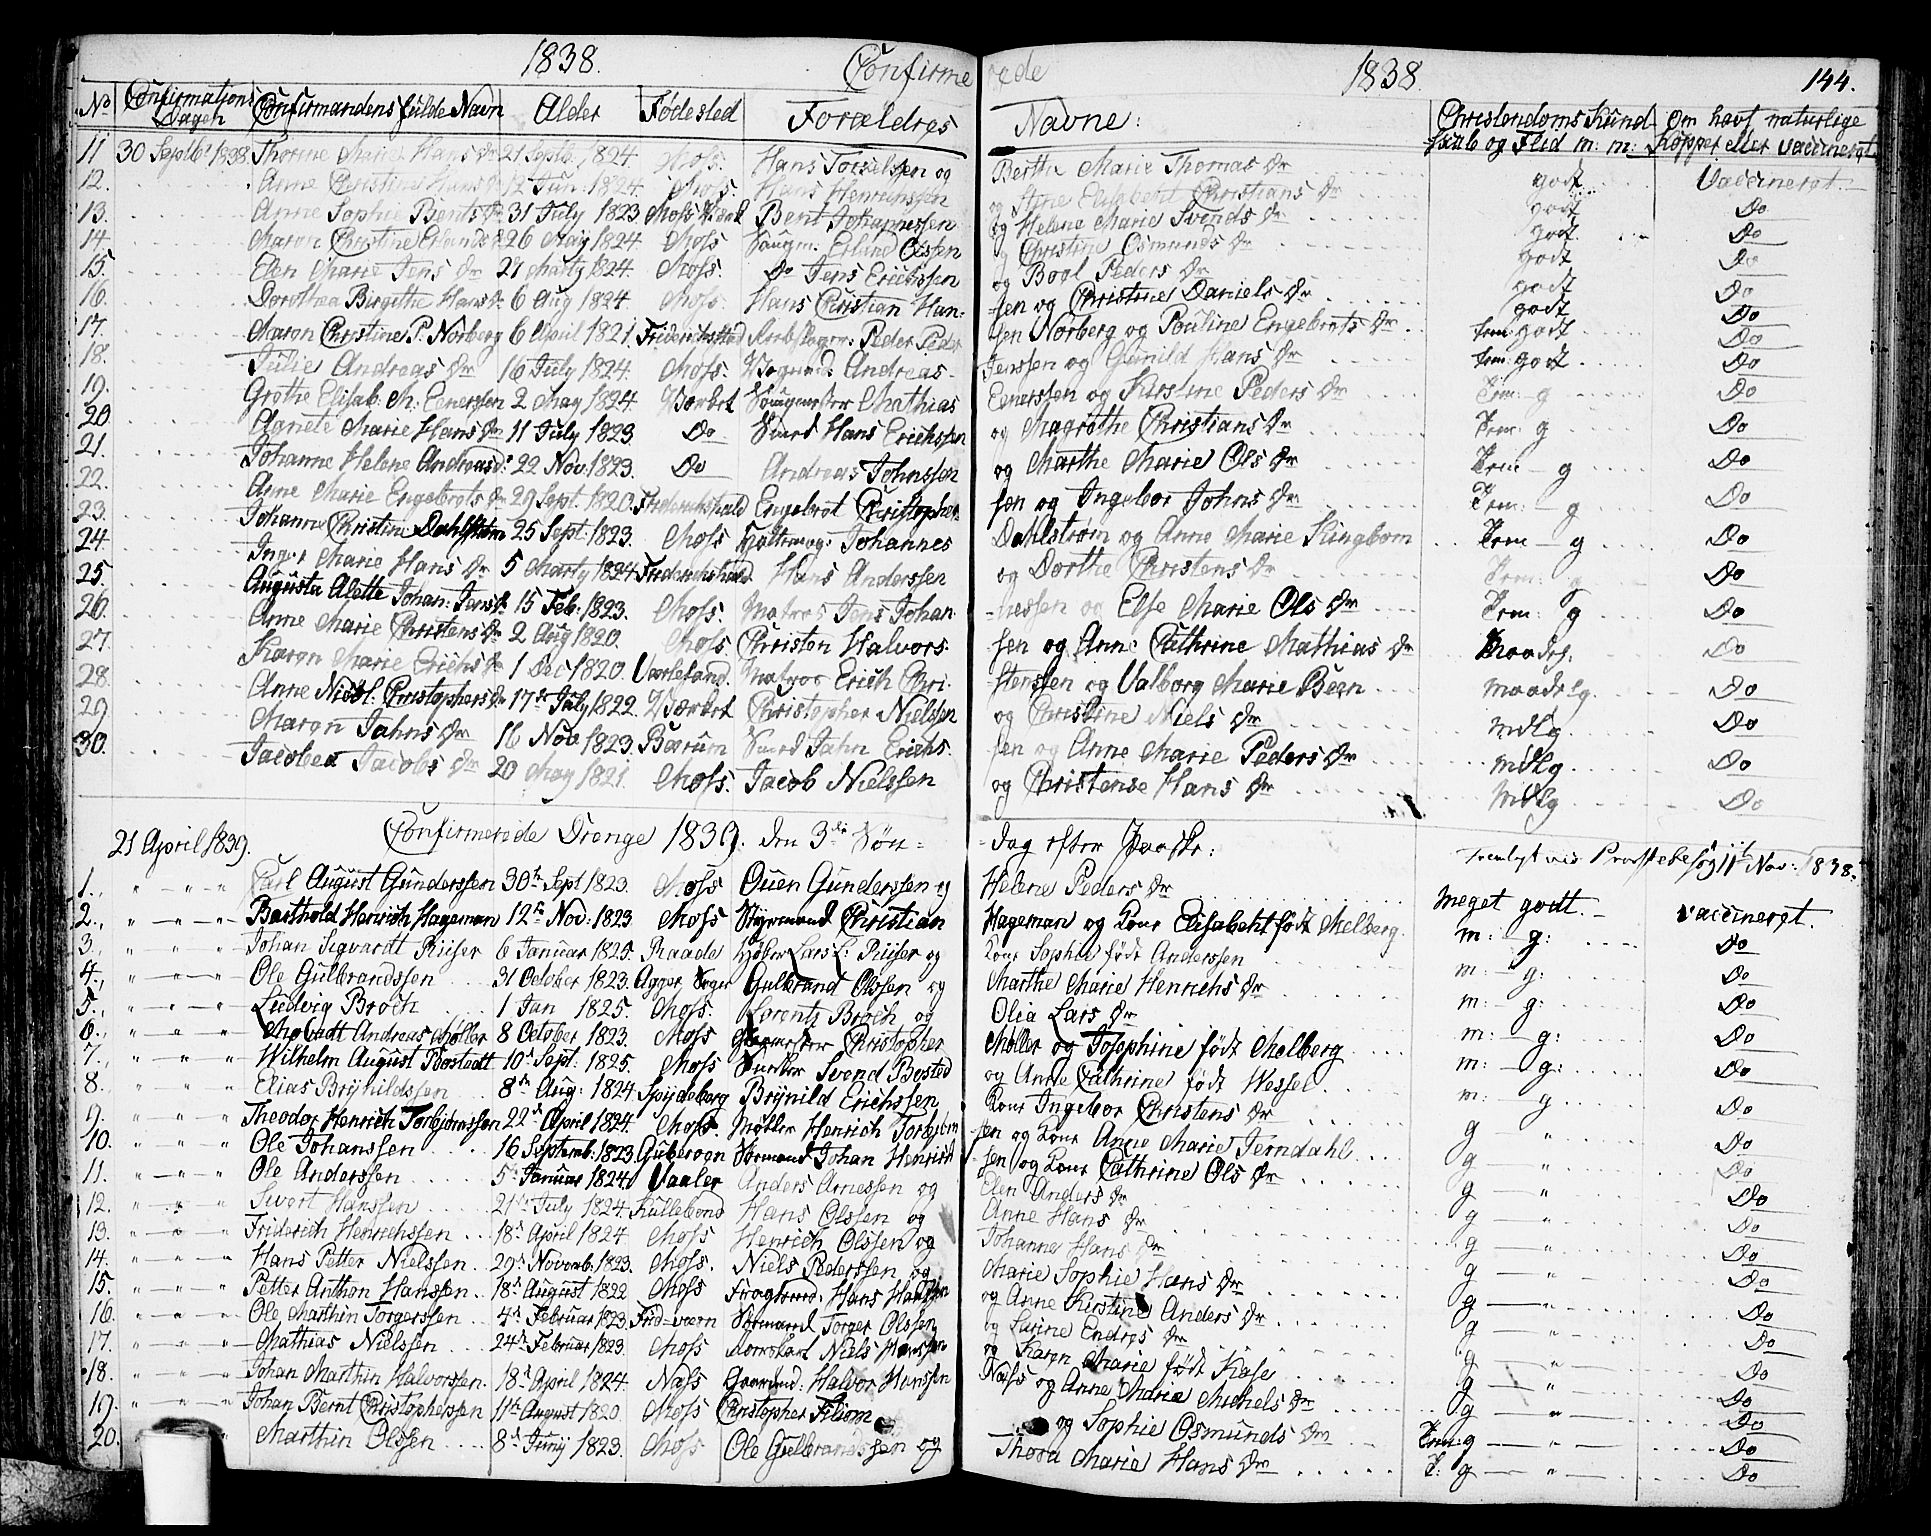 1838. Confirme rede 1838. 144.
No Confirmations Dagen Confirmandens fulde Navn Alder Fødested Forældres Navne: Christendoms Kund skab og Flid m: m: Om havt naturlige Kopper eller vaccineret
11 30 Septbr 1838. Thorine Marie Hans Dr 21 Septb. 1824. Moss. Hans Torkelsen og Berthe Marie Thomas Dr godt Vaccineret.
12. Anne Christine Hans Dr 12 Jun: 1824. Moss. Hans Henrichssen og Stine Elisabeth Christians Dr godt Do
13. Anne Sophie Bents Dr 31 July 1823 Moss Værk Bent Johannessen og Helene Marie Svends Dr godt Do
14. Maren Christine Erlands Dr 26 May 1824. Moss. Saugm. Erland Olssen og Christine Osmunds Dr godt Do
15. Elen Marie Jens Dr 29 Marty 1824. Moss. Do Jens Erichssen og Boel Peders Dr godt Do
16. Dorothea Birgithe Hans Dr 6 Aug 1824. Moss. Hans Christian Han- sen og Christine Daniels Dr godt Do
17. Maren Christine P. Norberg 6 April 1821. Friderichsstad Rebslager: Peder Peder sen Norberg og Pouline Engebrets Dr tem: godt Do
18. Julie Andreas Dr 16 July 1824. Moss. Andreas Jenssen og Gunild Hans Dr tem: godt Do
19. Grethe Elisab. M. Einerssen 2 May 1824. Værket Saugmester Mathias Einerssen og Kirstine Peders Dr Tem: g Do
20. Agnete Marie Hans Dr 11 July 1823 Do Smed Hans Erichssen og Magrethe Christians Dr Tem: g Do
21. Johanne Helene Andreas Dr 22 Nov. 1823. Do Andreas Johnssen og Marthe Marie Ols Dr Tem - g Do
22. Anne Marie Engebrets Dr 29 Sept. 1820. Friderichshald Engebret Christopher- sen og Ingebor Johns Dr Tem: - g Do
23. Johanne Christine Dahlstrøm 25 Sept. 1823. Moss Johannes Dahlstrøm og Anne Marie Ringbom Tem - g Do
24. Inger Marie Hans Dr 5 Marty 1824 Friderichshald Hans Anderssen og Dorthe Christens Dr Tem: g Do
25. Augusta Alette Johan: Jens Dr 15 Feb: 1823. Moss. Matros Jens Johan- nessen og Else Marie Ols Dr Tem: g Do
26. Anne Marie Christens Dr 2 Aug 1820. Moss Christen Halvors- sen og Anne Cathrine Mathias Dr Maadel. Do
27. Karen Marie Erichs Dr 1 Dec 1820. Varteland. Matros Erich Chri- stenssen og Valborg Marie Bern maadelg. Do
28. Anne Nicol. Christophers Dr 17de July 1822. Værket Christopher Nielssen og Christine Niels Dr mdlg Do
29. Maren Jahns Dr 16 Nov. 1823. Bærum Smed Jahn Erichs- sen og Anne Marie Peders Dr mdlg Do
30. Jacobea Jacobs Dr 20 May 1821. Moss. Jacob Nielssen og Christense Hans Dr mdlg Do
21 April 1839. Confirmerede Drenge 1839. den 3die Søn- dag efter Paaske: Fremlagt ved Provstebesøg 11t Nov: 1838.
1. Carl August Gunderssen 30te Sept 1823. Moss Ouen Gunderssen og Helene Peders Dr Meget godt. vaccineret.
2. Barthold Henrich Hageman 12te Nov: 1823 Moss Styrmand Christian Hageman og Kone Elisabeht født Melberg. m: - g: Do
3. Johan Sigvardt Riiser 6 Januar 1825. Raade Lars L: Riiser og Kone Sophie født Anderssen m: g: Do
4. Ole Gulbrandssen 31 October 1823. Agger Sogn Gulbrand Olssen og Marthe Marie Henrichs Dr m: g: Do
5. Ludvig Broch 1 Jan 1825. Moss. Lorentz Broch og Olia Lars Dr m: g: Do
6. Andreas Møller 8 October 1823. Moss Christopher Møller og Josephine født Melberg m: g: Do
7. Wilhelm August Bostedt 10de Sept. 1825. Moss Svend Bosted og Anne Cathrine født Wessel m: - g: Do
8. Elias Brynildssen 8de Aug: 1824. Spydeberg Brynild Erichssen Kone Ingebor Christens Dr m: - g Do
9. Theodor Henrich Torbjørnssen 22de April 1824. Moss. Møller Henrich Torbjørn sen og Kone Anne Marie Jerndahl g - " Do
10. Ole Johanssen 16 Septemb. 1823 Gubberøen Johan Henrich sen og Kone Cathrine Ols Dr g " Do
11. Ole Anderssen 5te Januar 1824 Vaaler Anders Arnessen og Elen Anders Dr g - " Do
12. Sivert Hanssen 21de July 1824. Kullebund Hans Olssen og Anne Hans Dr g - " Do
13. Friderich Henrichssen 18de April 1824 Moss Henrich Olssen og Johanne Hans Dr g - " Do
14. Hans Petter Nielssen 29de Novemb. 1823. Moss. Niels Pederssen og Marie Sophie Hans Dr g - " Do
15. Petter Anthon Hanssen 18de August 1822 Moss Hans Hanssen og Anne Kirstine Anders Dr g - " Do
16. Ole Marthin Torgerssen 4de Februar 1823. Torger Olssen og Karine Endres Dr g - " Do
17. Mathias Nielssen 24de Februar 1823. Moss Niels Hanssen og Karen Marie født Kase g - " Do
18. Johan Marthin Halvorssen 18de April 1824. Næss Gaarmd. Halvor Hanssen Næss og Anne Marie Michels Dr g - " Do
19. Johan Bernt Christopherssen 11te August 1820. Moss Christopher Filiom og Sophie Osmunds Dr Tem: g - " Do
20. Marthin Olssen 8de Juny 1823. Moss Ole Gulbrandssen og Thora Marie Hans Dr T: g - " Do